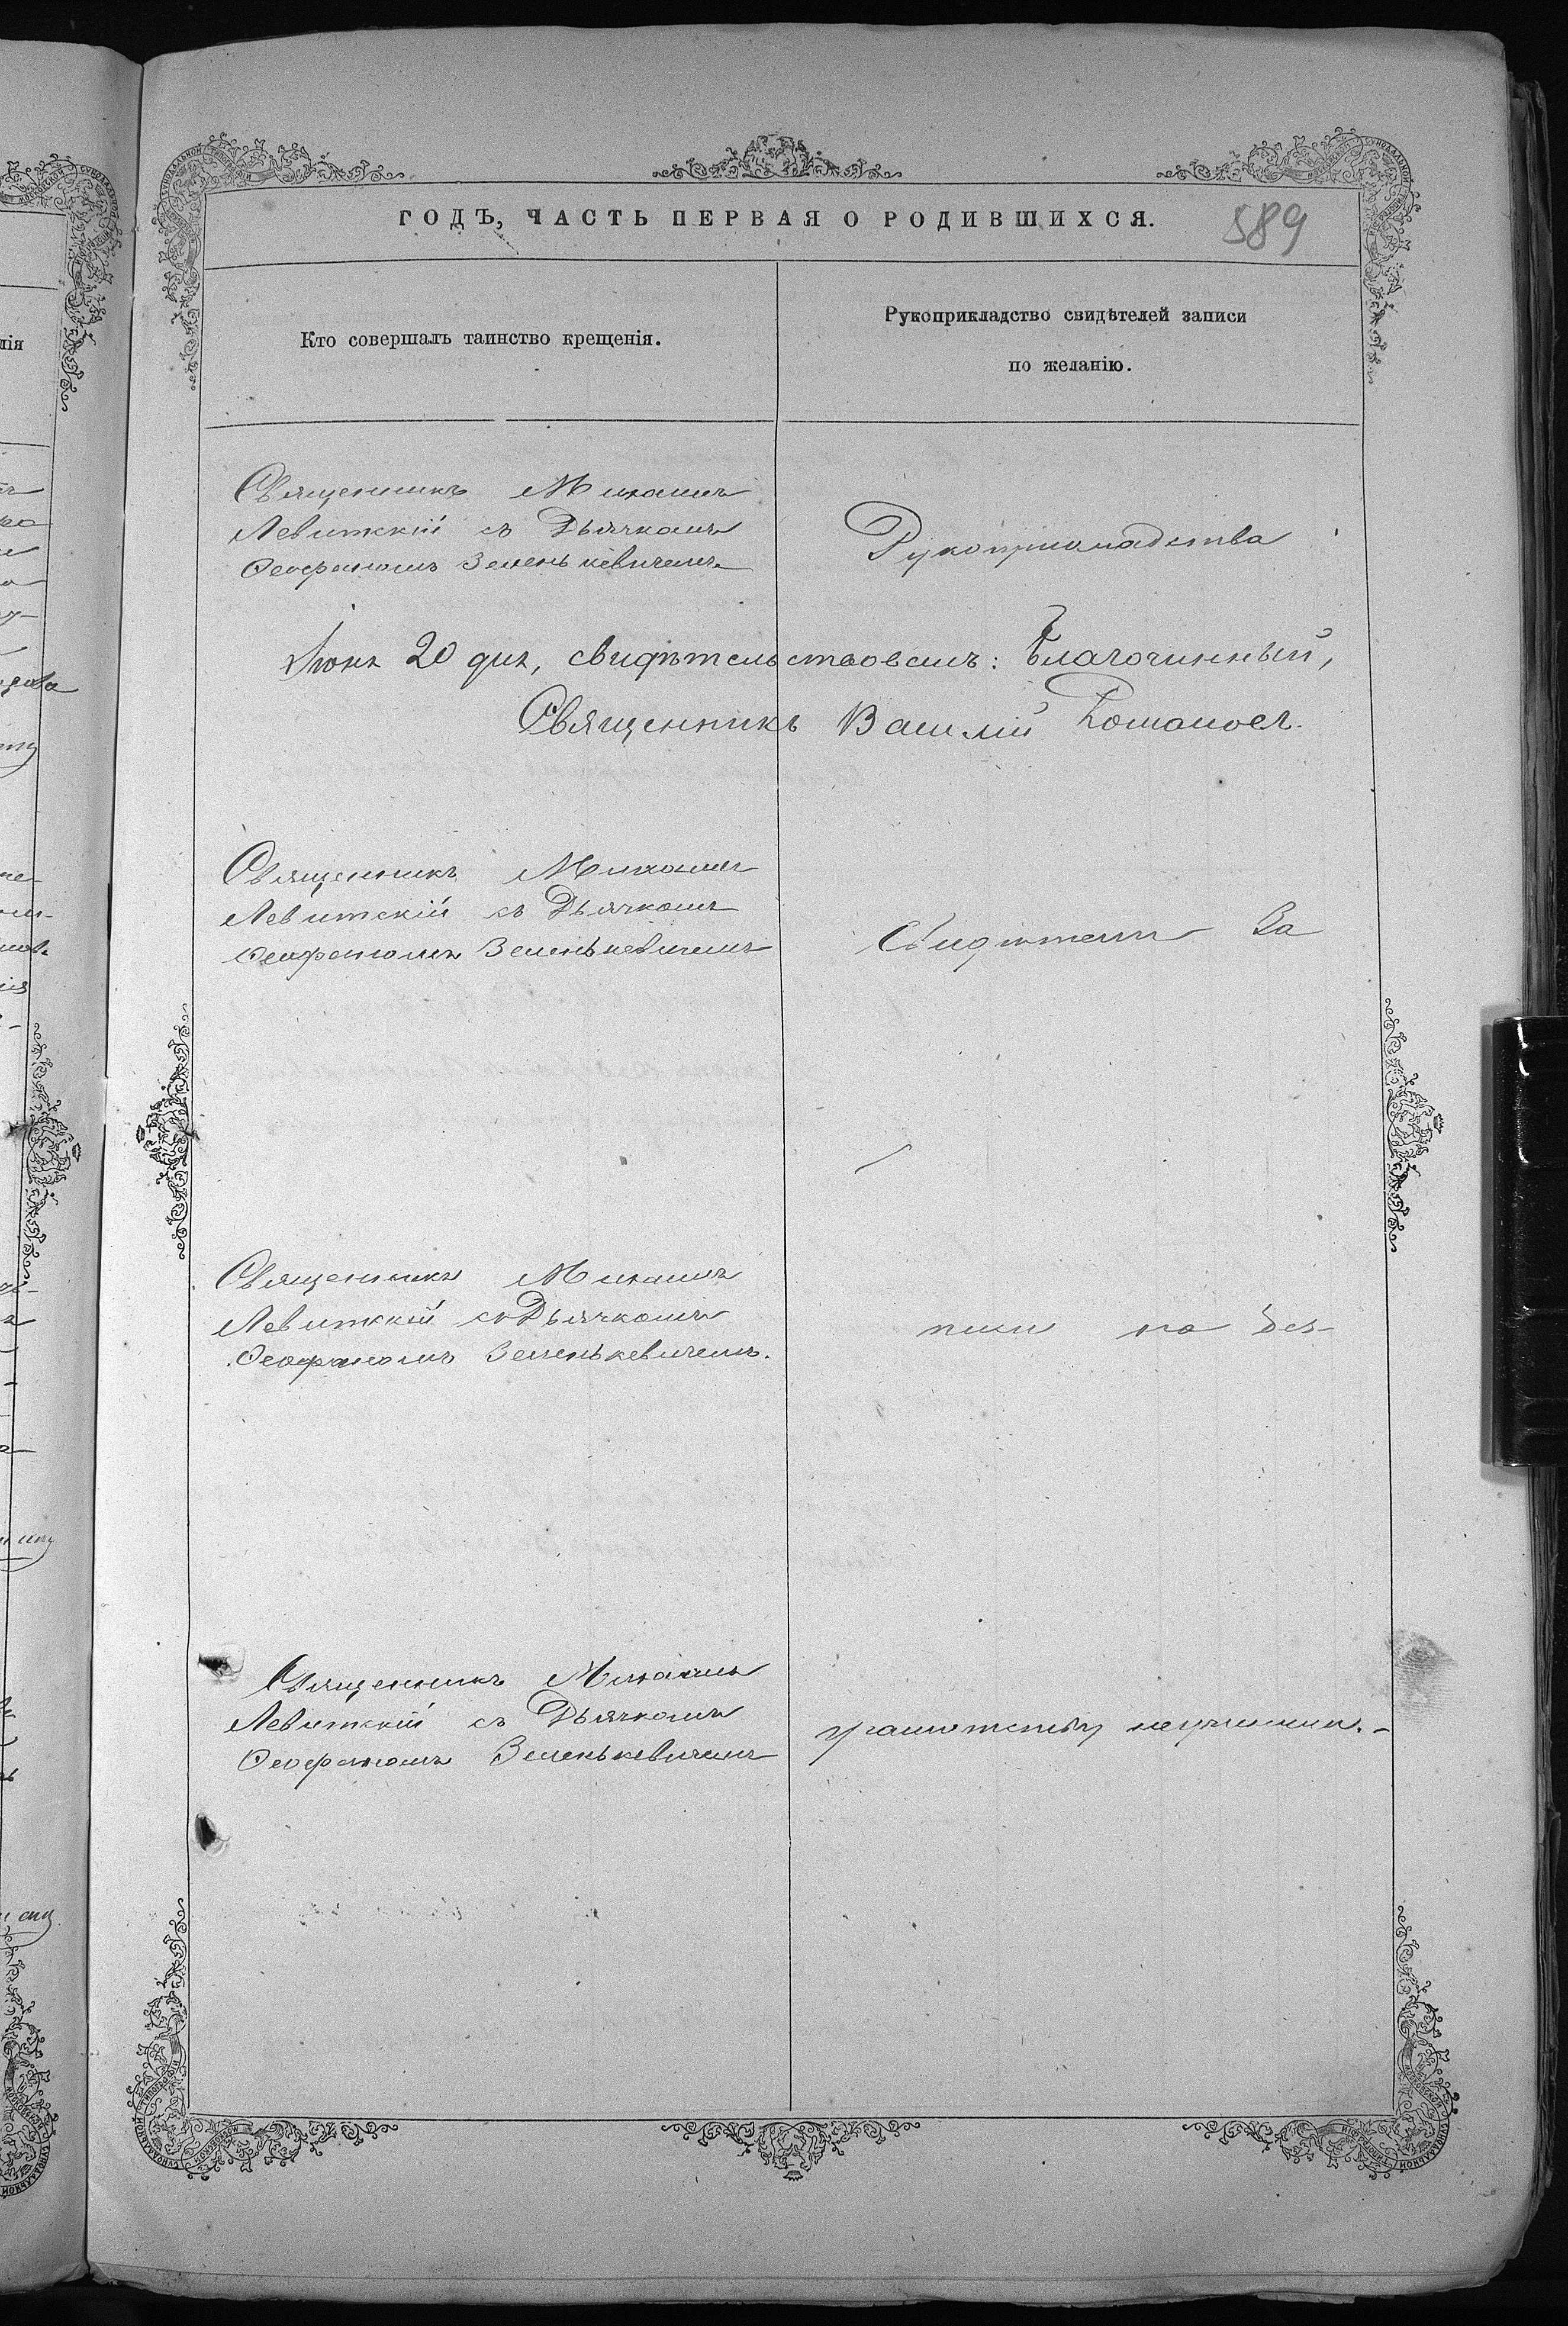 ГОДЪ, ЧАСТЬ ПЕРВАЯ О РОДИВШИХСЯ.
589
Кто совершалъ таинство крещенія.
Рукоприкладство свидѣтелей записи
по желанію.
Священникъ Михаилъ
Левитскій съ Дьячкомъ
Ѳеофаномъ Зеленькевичемъ
Рукоприкладства
Іюня 20 дня, свидѣтельствовалъ: Благочинный,
Священникъ Василій Романовъ.
Священникъ Михаилъ
Левитскій съ Дьячкомъ
Ѳеофаномъ Зеленькевичемъ
Свидѣтели За
Священникъ Михаилъ
Левитскій съ Дьячкомъ
Ѳеофаномъ Зеленькевичемъ.
писи по без-
Священникъ Михаилъ
Левитскій съ Дьячкомъ
Ѳеофаномъ Зеленькевичемъ
грамотству неучинили.-